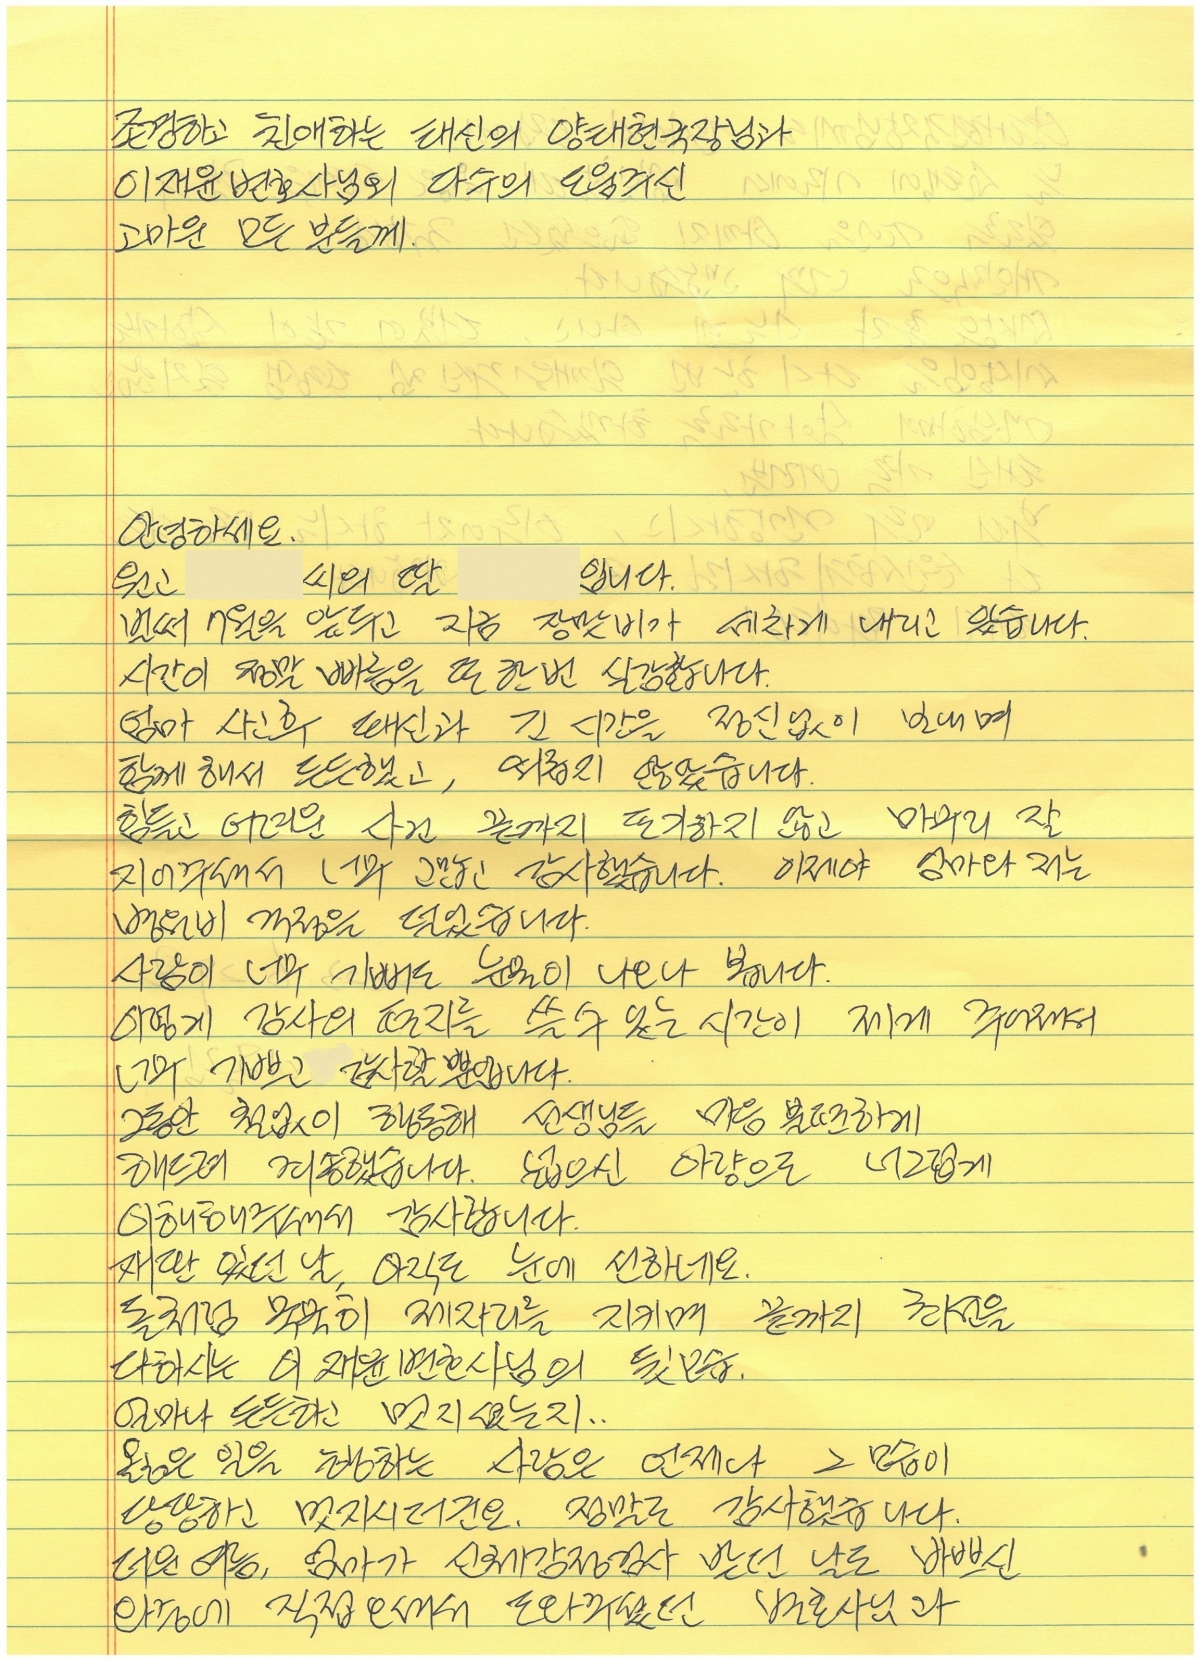 존경하고 친애하는 태신의 양태현국장님과
이재윤변호사님외 다수의 도움주신
고마운 모든 분들께.
안녕하세요.
원고 씨의 딸 입니다.
벌써 7월을 앞두고 지금 장맛비가 세차게 내리고 있습니다.
시간이 정말 빠름을 또 한번 실감합니다.
엄마 사고후 태신과 긴 시간을 정신없이 보내며
함께해서 든든했고, 외롭지 않았습니다.
힘들고 어려운 사건 끝까지 포기하지 않고 마무리 잘
지어주셔서 너무 고맙고 감사했습니다. 이제야 엄마와 저는
병원비 걱정을 덜었습니다.
사람이 너무 기뻐도 눈물이 나오나 봅니다.
이렇게 감사의 편지를 쓸 수 있는 시간이 제게 주어져서
너무 기쁘고 감사할 뿐입니다.
그동안 철없이 행동해 선생님들 마음 불편하게
해드려 죄송했습니다. 넓으신 아량으로 너그럽게
이해해주셔서 감사합니다.
재판 있던 날, 아직도 눈에 선하네요.
돌처럼 묵묵히 제자리를 지키며 끝까지 최선을
다하시는 이재윤변호사님의 뒷모습.
얼마나 든든하고 멋지셨는지..
옳은 일을 행하는 사람은 언제나 그 모습이
당당하고 멋지시더군요. 정말로 감사했습니다.
더운 여름, 엄마가 신체감정검사 받던 날도 바쁘신
와중에 직접 오셔서 도와주셨던 변호사님과